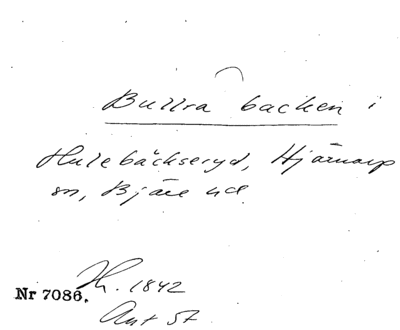 Bullra backen i
Hulebäckseryd, Hjärnarp
sn, Bjäre hd
H. 1842
Nr 7086.
Ant St